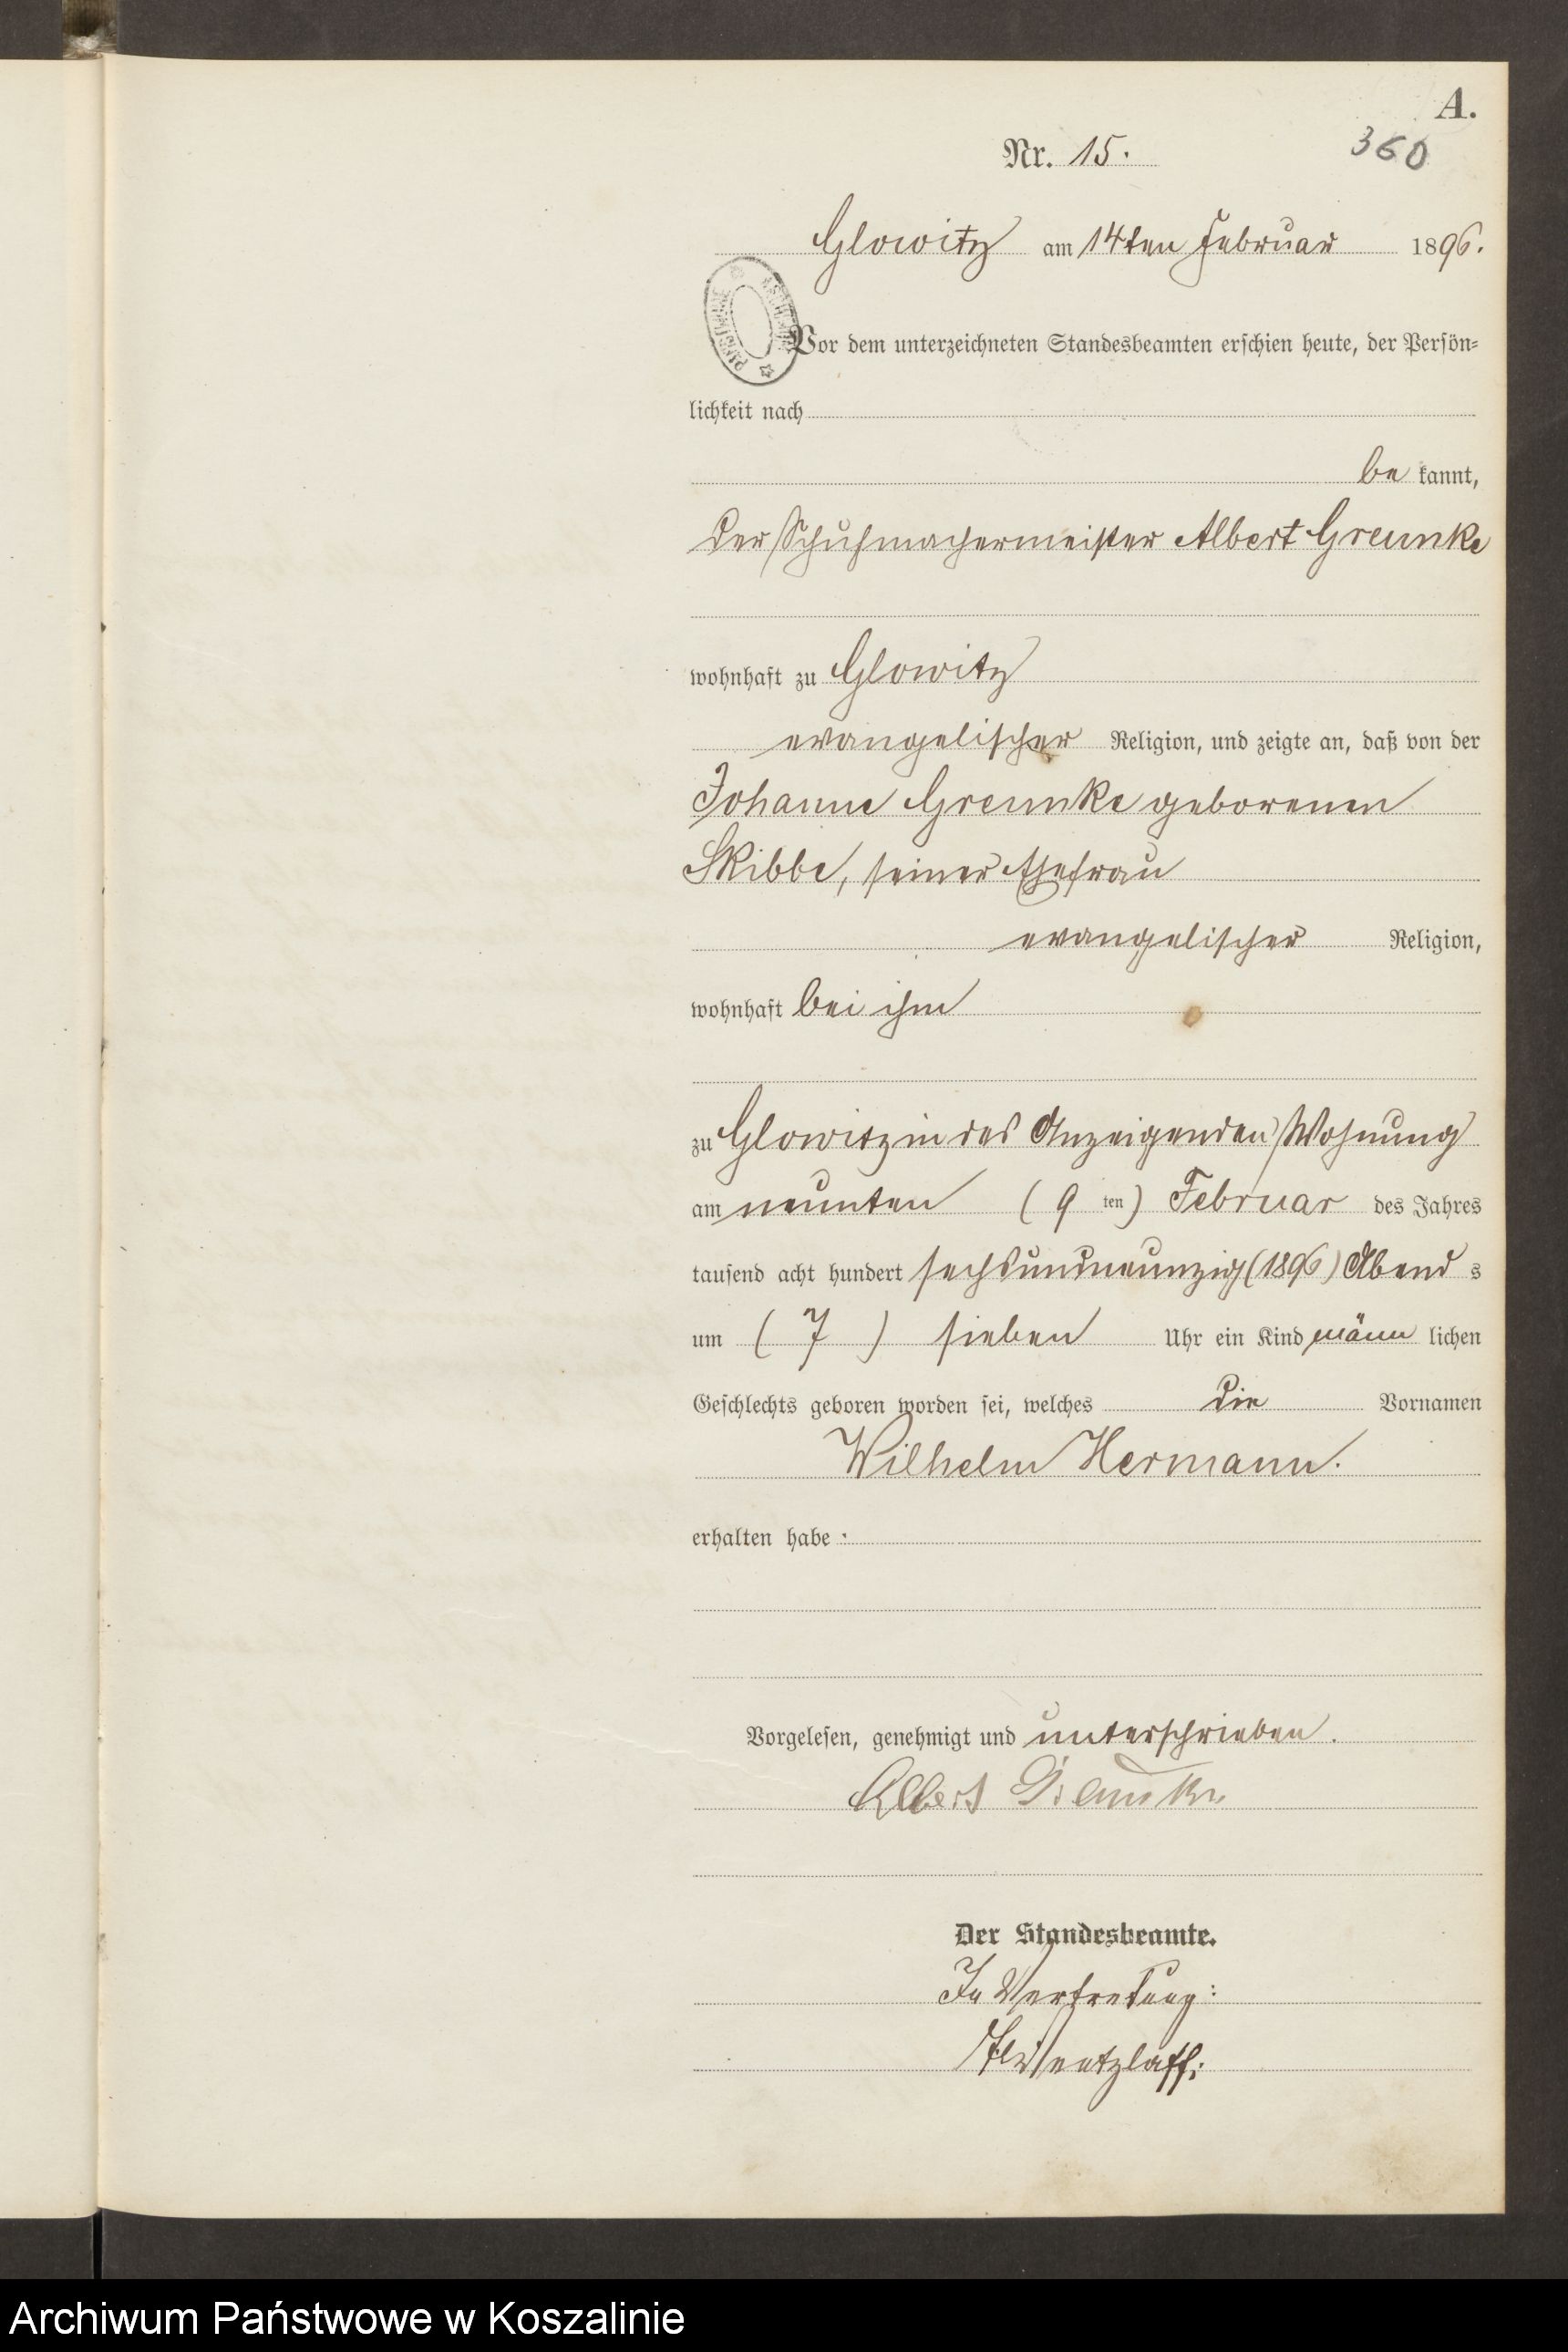 A.
Nr. 15.
360
Glowitz am 14ten Februar 1896.
Vor dem unterzeichneten Standesbeamten erschien heute, der Persön-
lichkeit nach
be kannt,
der Schuhmachermeister Albert Greunke
wohnhaft zu Glowitz
evangelischer Religion, und zeigte an, daß von der
Johanne Greunke geborenen
Skibbe, seiner Ehefrau
evangelischer Religion,
wohnhaft bei ihm
zu Glowitz in des Anzeigenden Wohnung
am neunten (9 ten) Februar des Jahres
tausend acht hundert sechsundneunzig (1896) Abend s
um (7) sieben Uhr ein Kind männ lichen
Geschlechts geboren worden sei, welches die Vornamen
Wilhelm Hermann.
erhalten habe.
Vorgelesen, genehmigt und unterschrieben.
Albert Greunke
Der Standesbeamte.
In Vertretung:
Wentzlaff.
Archiwum Państwowe w Koszalinie